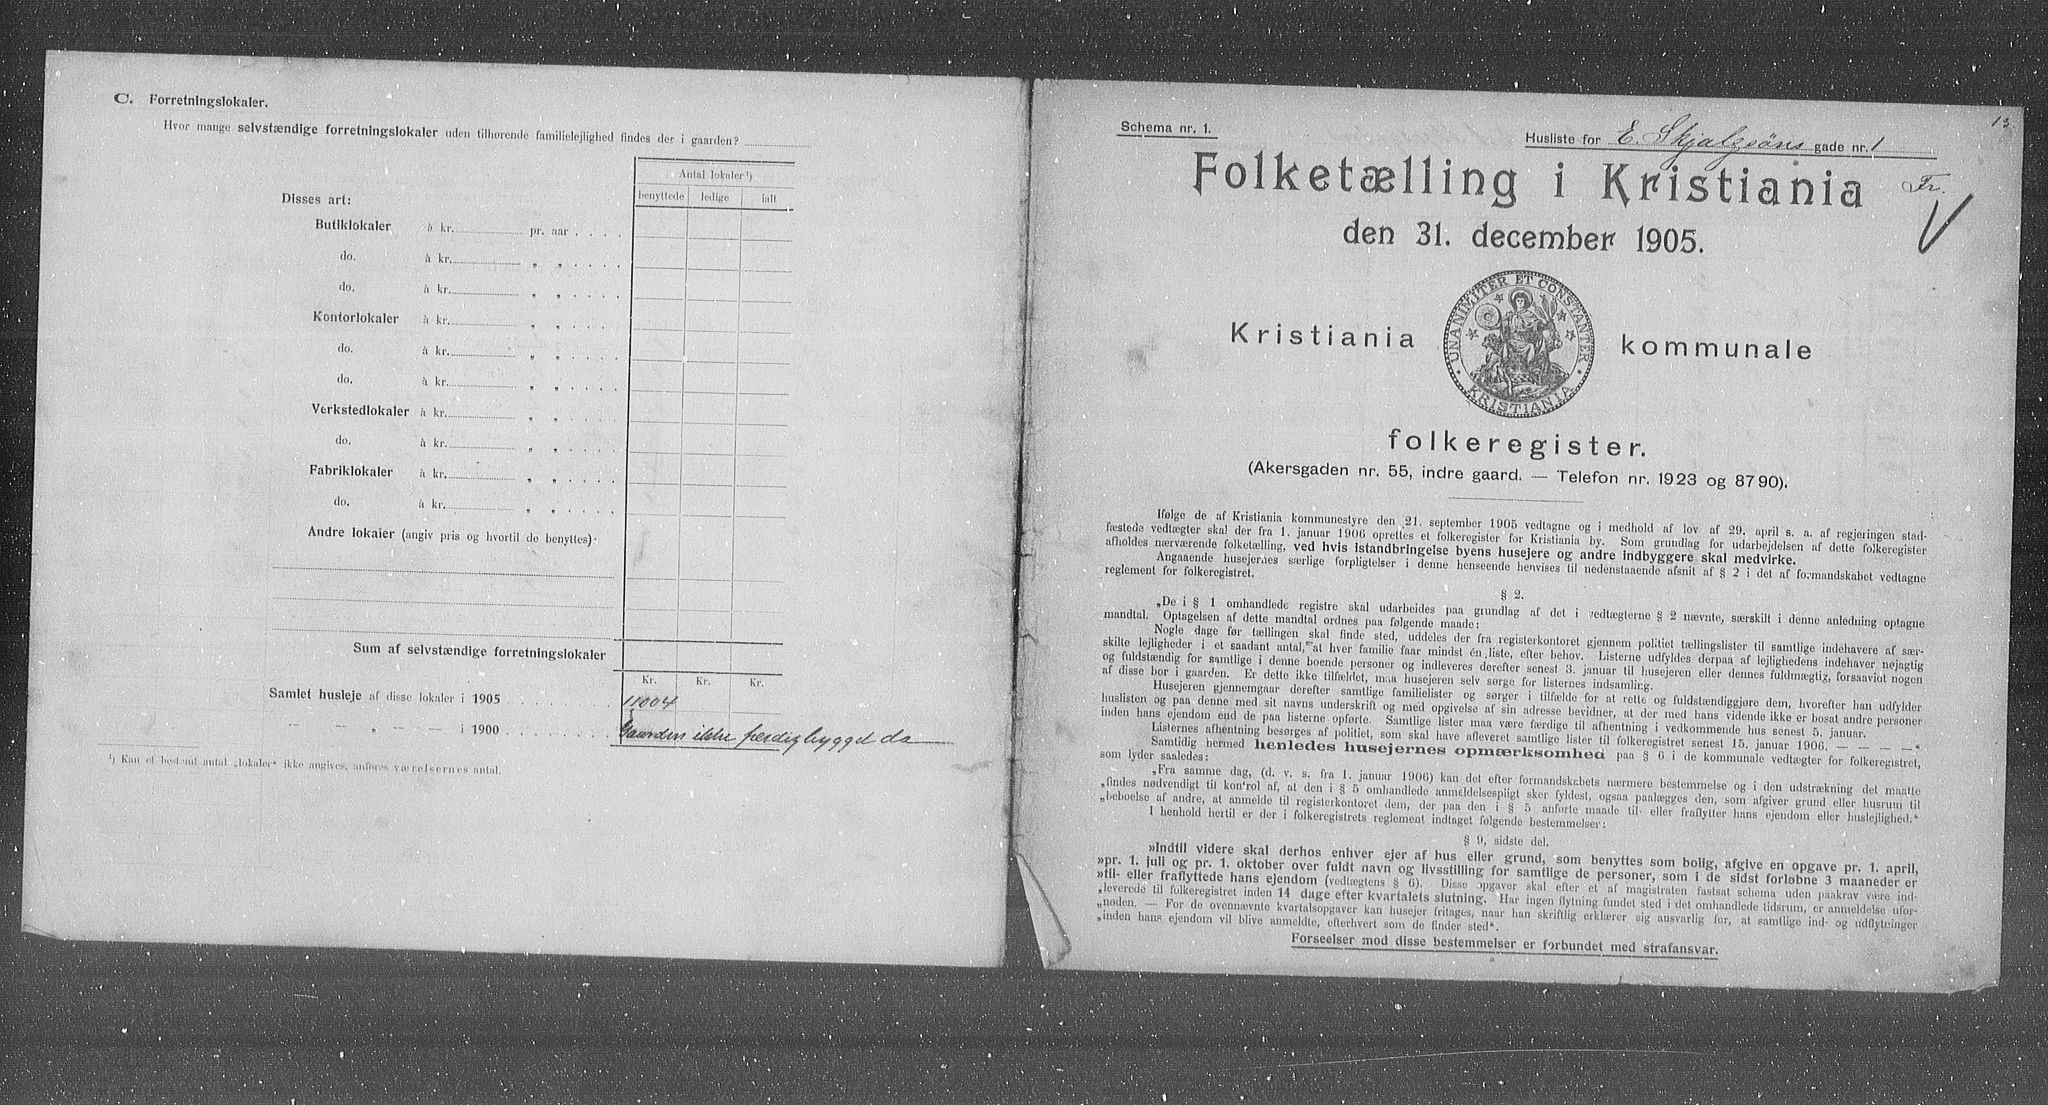 C. Forretningslokaler.
Hvor mange selvstændige forretningslokaler uden tilhørende familielejlighed findes der i gaarden?
Antal lokaler ¹)
benyttede ledige ialt
Disses art:
Butiklokaler à kr. pr. aar
do. à kr. „ „
do. à kr. „ „
Kontorlokaler à kr. „ „
do. à kr. „ „
do. à kr. „ „
Verkstedlokaler à kr. „ „
do. à kr. „ „
Fabriklokaler à kr. „ „
do. à kr. „ „
Andre lokaler (angiv pris og hvortil de benyttes):
Sum af selvstændige forretningslokaler
Kr. Kr. Kr.
Samlet husleje af disse lokaler i 1905 11004
— „ — „ — i 1900 Gaarden ikke færdigbygget da
¹) Kan et bestemt antal „lokaler“ ikke angives, anføres værelsernes antal.
13
Schema nr. 1.
Husliste for E. Skjalgsøns gade nr. 1
Folketælling i Kristiania
Fr.
den 31. december 1905.
UNANIMITER ET CONSTANTER
KRISTIANIA
Kristiania kommunale
folkeregister.
(Akersgaden nr. 55, indre gaard. — Telefon nr. 1923 og 8790).
Ifølge de af Kristiania kommunestyre den 21. september 1905 vedtagne og i medhold af lov af 29. april s. a. af regjeringen stad-
fæstede vedtægter skal der fra 1. januar 1906 oprettes et folkeregister for Kristiania by. Som grundlag for udarbejdelsen af dette folkeregister
afholdes nærværende folketælling, ved hvis istandbringelse byens husejere og andre indbyggere skal medvirke.
Angaaende husejernes særlige forpligtelser i denne henseende henvises til nedenstaaende afsnit af § 2 i det af formandskabet vedtagne
reglement for folkeregistret.
§ 2.
„De i § 1 omhandlede registre skal udarbeides paa grundlag af det i vedtægterne § 2 nævnte, særskilt i denne anledning optagne
mandtal. Optagelsen af dette mandtal ordnes paa følgende maade:
Nogle dage før tællingen skal finde sted, uddeles der fra registerkontoret gjennem politiet tællingslister til samtlige indehavere af sær-
skilte lejligheder i et saadant antal, at hver familie faar mindst én liste, efter behov. Listerne udfyldes derpaa af lejlighedens indehaver nøjagtig
og fuldstændig for samtlige i denne boende personer og indleveres derefter senest 3. januar til husejeren eller dennes fuldmægtig, forsaavidt nogen
af disse bor i gaarden. Er dette ikke tilfældet, maa husejeren selv sørge for listernes indsamling.
Husejeren gjennemgaar derefter samtlige familielister og sørger i tilfælde for at rette og fuldstændiggjøre dem, hvorefter han udfylder
huslisten og paa denne med sit navns underskrift og med opgivelse af sin adresse bevidner, at der med hans vidende ikke er bosat andre personer
inden hans ejendom end de paa listerne opførte. Samtlige lister maa være færdige til afhentning i vedkommende hus senest 5. januar.
Listernes afhentning besørges af politiet, som skal have afleveret samtlige lister til folkeregistret senest 15. januar 1906. — — — —“
Samtidig hermed henledes husejernes opmærksomhed paa § 6 i de kommunale vedtægter for folkeregistret,
som lyder saaledes:
„Fra samme dag, (d. v. s. fra 1. januar 1906) kan det efter formandskabets nærmere bestemmelse og i den udstrækning det maatte
„findes nødvendigt til kontrol af, at den i § 5 omhandlede anmeldelsespligt sker fyldest, ogsaa paalægges den, som afgiver grund eller husrum til
„beboelse af andre, at anmelde til registerkontoret dem, der paa den i § 5 anførte maade til- eller fraflytter hans ejendom eller huslejlighed.“
I henhold hertil er der i folkeregistrets reglement indtaget følgende bestemmelser:
§ 9, sidste del.
»Indtil videre skal derhos enhver ejer af hus eller grund, som benyttes som bolig, afgive en opgave pr. 1. april,
»pr. 1. juli og pr. 1. oktober over fuldt navn og livsstilling for samtlige de personer, som i de sidst forløbne 3 maaneder er
»til- eller fraflyttede hans ejendom (vedtægtens § 6). Disse opgaver skal efter et af magistraten fastsat schema uden paakrav være ind-
„leverede til folkeregistret inden 14 dage efter kvartalets slutning. Har ingen flytning fundet sted i det omhandlede tidsrum, er anmeldelse ufor-
„nøden. — For de ovennævnte kvartalsopgaver kan husejer fritages, naar han skriftlig erklærer sig ansvarlig for, at samtlige ind- og udflytninger
„inden hans ejendom vil blive anmeldte, efterhvert som de finder sted“.
Forseelser mod disse bestemmelser er forbundet med strafansvar.